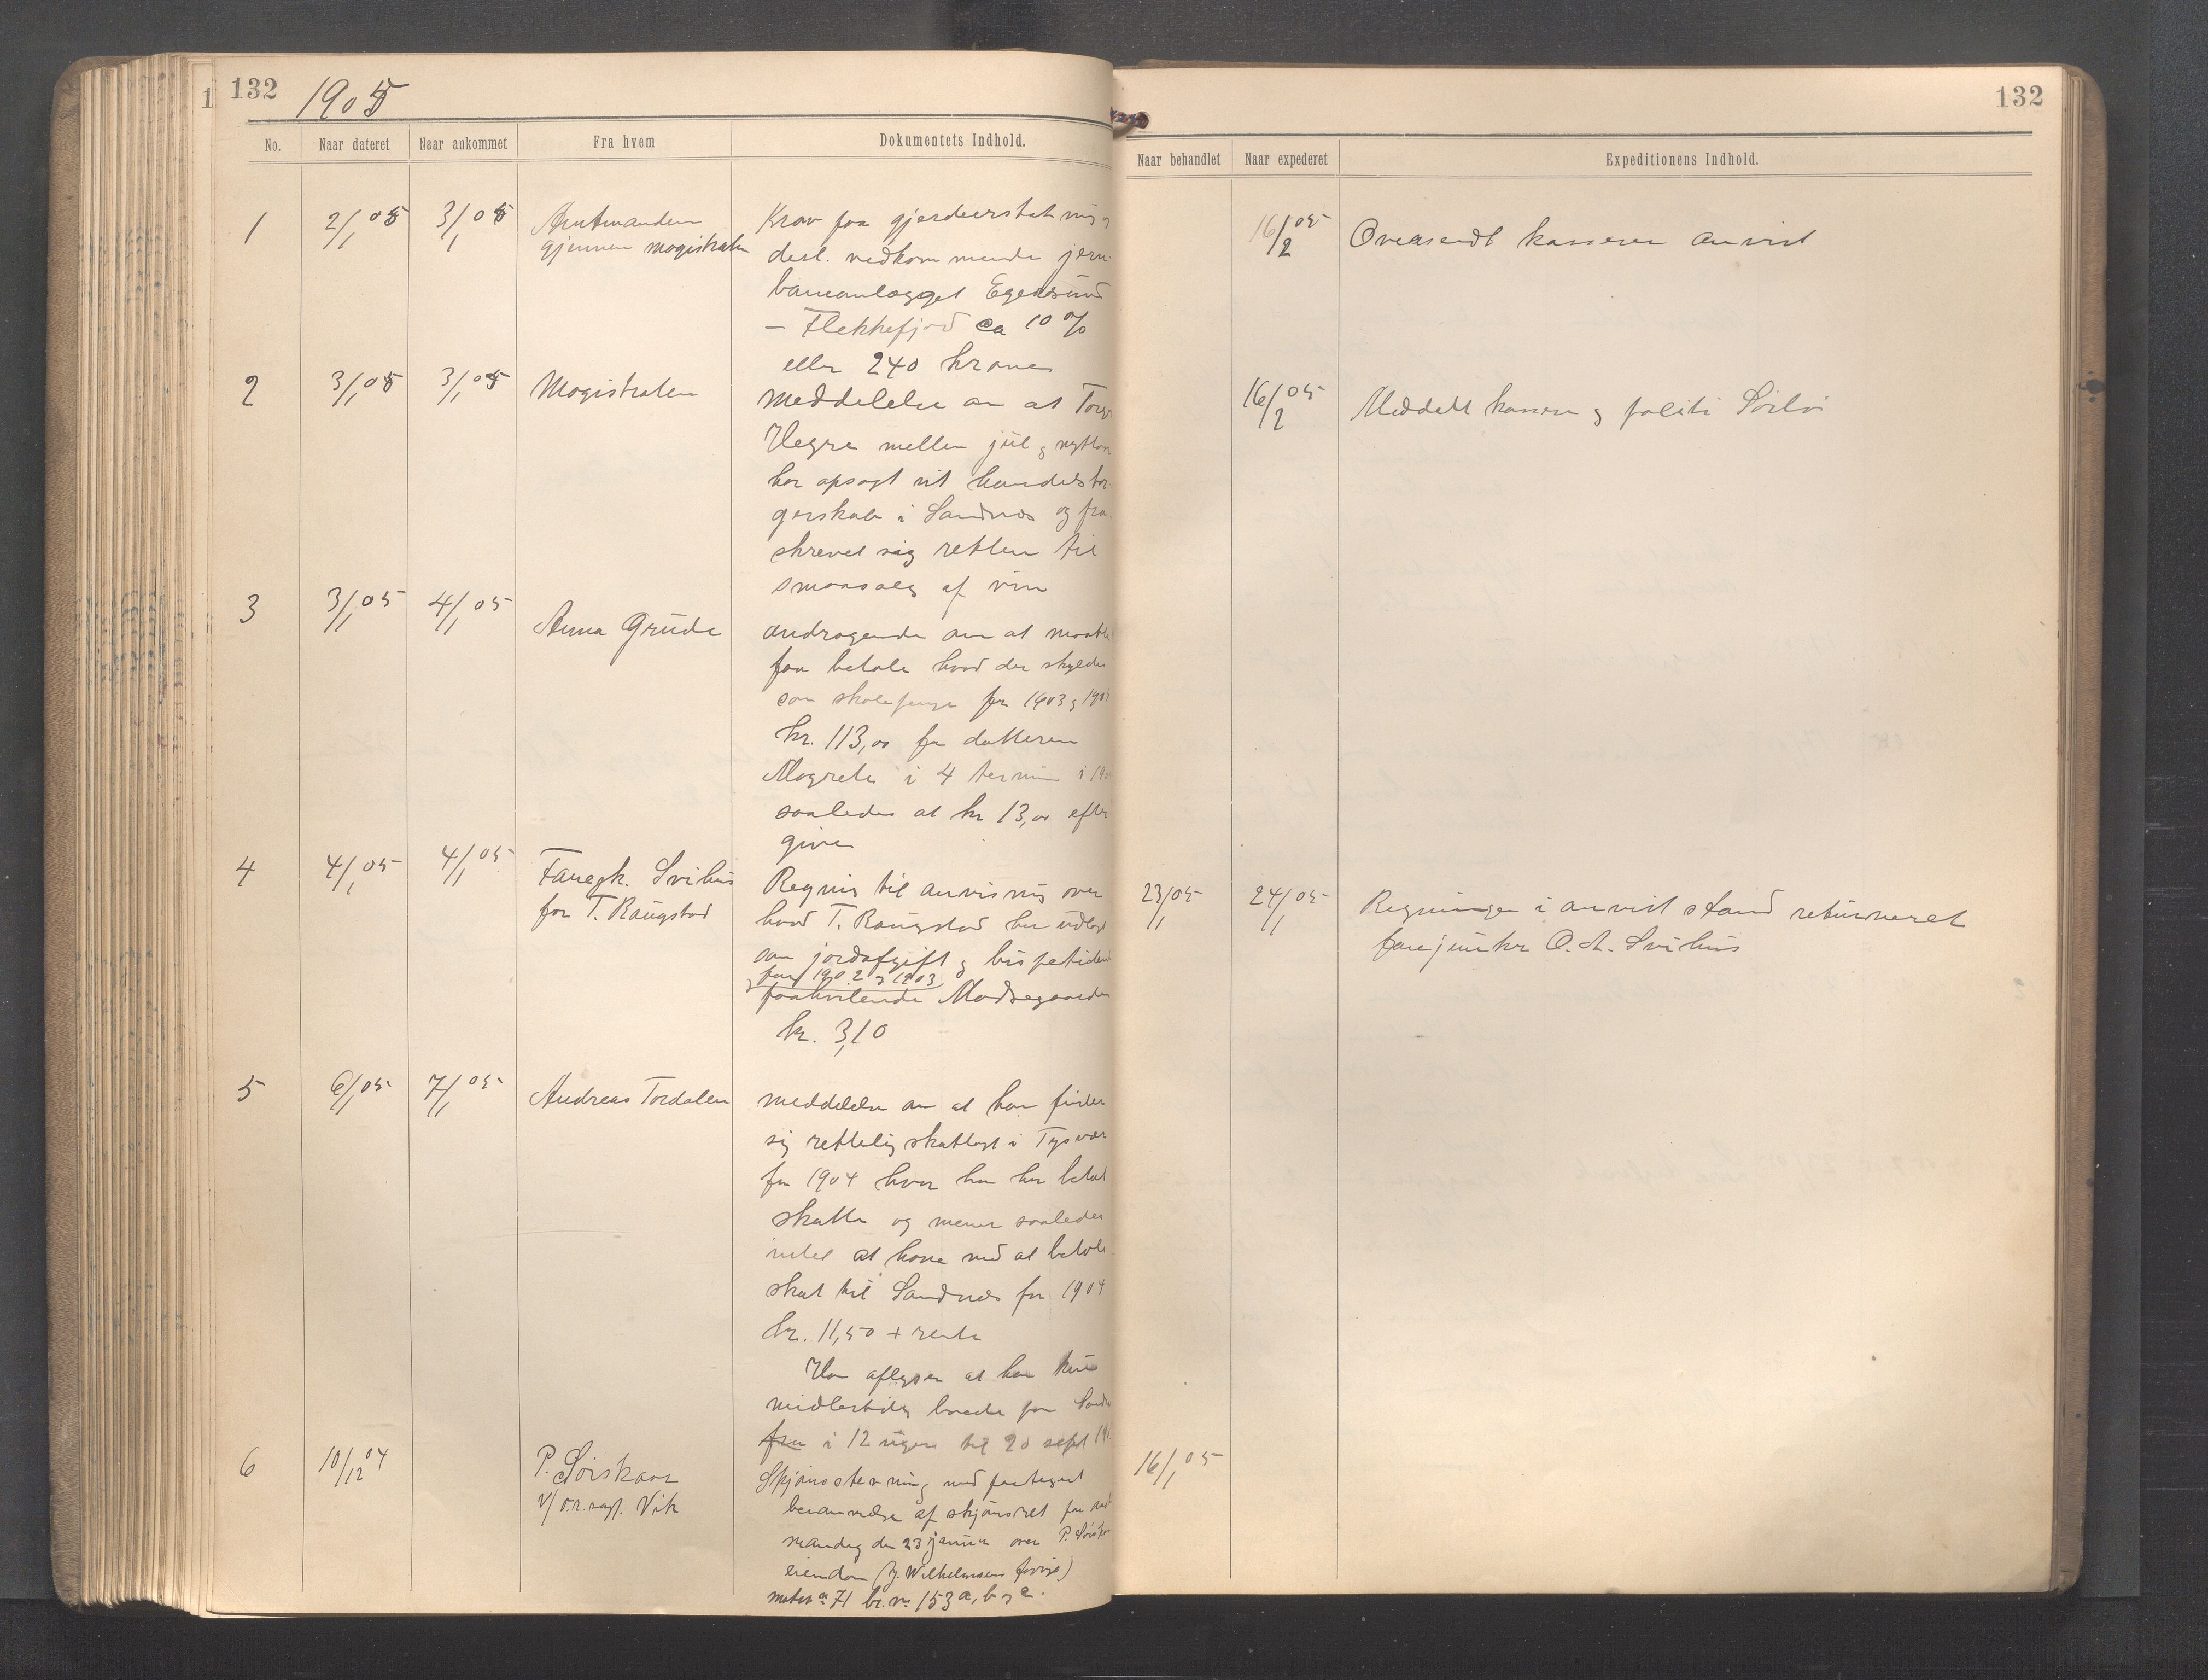 132
1905
No.
Naar dateret
Naar ankommet
Fra hvem
Dokumentets Indhold.
1
2/1 05
3/1 05
Amtmanden
gjennem magistraten
Krav paa gjerdeerstatning og
desl. vedkommende jern-
baneanlægget Egersund
– Flekkefjord ca 10 %
eller 240 kroner
2
3/1 05
3/1 05
Magistraten
meddelelse om at
Hegre mellem jul og nytaar
har opsagt sit handelsbor-
gerskab i Sandnes og fra-
skrevet sig retten til
smaasalg af vin
3
3/1 05
4/1 05
Anna Grude
andragende om at maatte
faa betale hvad der skyldes
som skolepenge for 1903 og 1904
kr. 113,00 for datteren
Magrete i 4 termin i
saaledes at kr 13,00 efter
gives
4
4/1 05
4/1 05
Fanejk. Svihus
for T. Raugstad
Regning til anvisning over
hvad T. Raugstad har udlagt
som jordafgift og bispetiende
for 1902 og 1903
paahvilende Madsegaarden
kr. 3,10
5
6/1 05
7/1 05
Andreas Tordalen
meddelelse om at han finder
sig rettelig skatlagt i Tysvær
for 1904 hvor han har betalt
skatte og mener saaledes
intet at have med at betale
skat til Sandnes for 1904
kr. 11,50 + rente
Han oplyser at han kun
midlertidig boede paa Sandnes
fra i 12 uger til 20 sept
6
10/12 04
P. Sørskaar
v/ o.r.sagf. Vik
Skjønsstevning med paategnet
berammelse af skjønsret paa
mandag den 23 januar over P. Sørskaar
eiendom (J. Wilhelmsens forrige)
matr no 71 br. no 153 a, b og c.
132
Naar behandlet
Naar expederet
Expeditionens Indhold.
16/2 05
Oversendt kasseren anvist
16/2 05
Meddelt kasserer og politi Sørbø
23/1 05
24/1 05
Regningen i anvist stand returneret
fanejunker O. A. Svihus
16/1 05